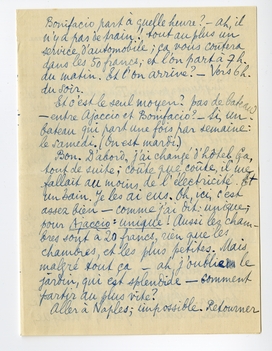 Bonifacio part à quelle heure? — Ah, il
n'y a pas de train! tout au plus un
service d'automobile; ça vous coûtera
dans les 50 francs; et l'on part à 7 h.
du matin. Et l'on arrive? — Vers 6 h.
du soir.
Et c'est le seul moyen? pas de bateau
— entre Ajaccio et Bonifacio? — Si, un
bateau qui part une fois par semaine:
le samedi. (On est mardi)
Bon. D'abord, j'ai changé d'hôtel. Ça,
tout de suite; coûte que coûte, il me
fallait au moins de l'électricité. Et
un bain. Je les ai eus. Oh, ici, c'est
assez bien — comme j'ai dit, unique;
pour Ajaccio: unique! Aussi les cham-
bres sont à 20 francs, rien que les
chambres, et les plus petites. Mais
malgré tout ça — ah j'oublie le
jardin, qui est splendide — comment
partir au plus vite?
Aller à Naples; impossible. Retourner